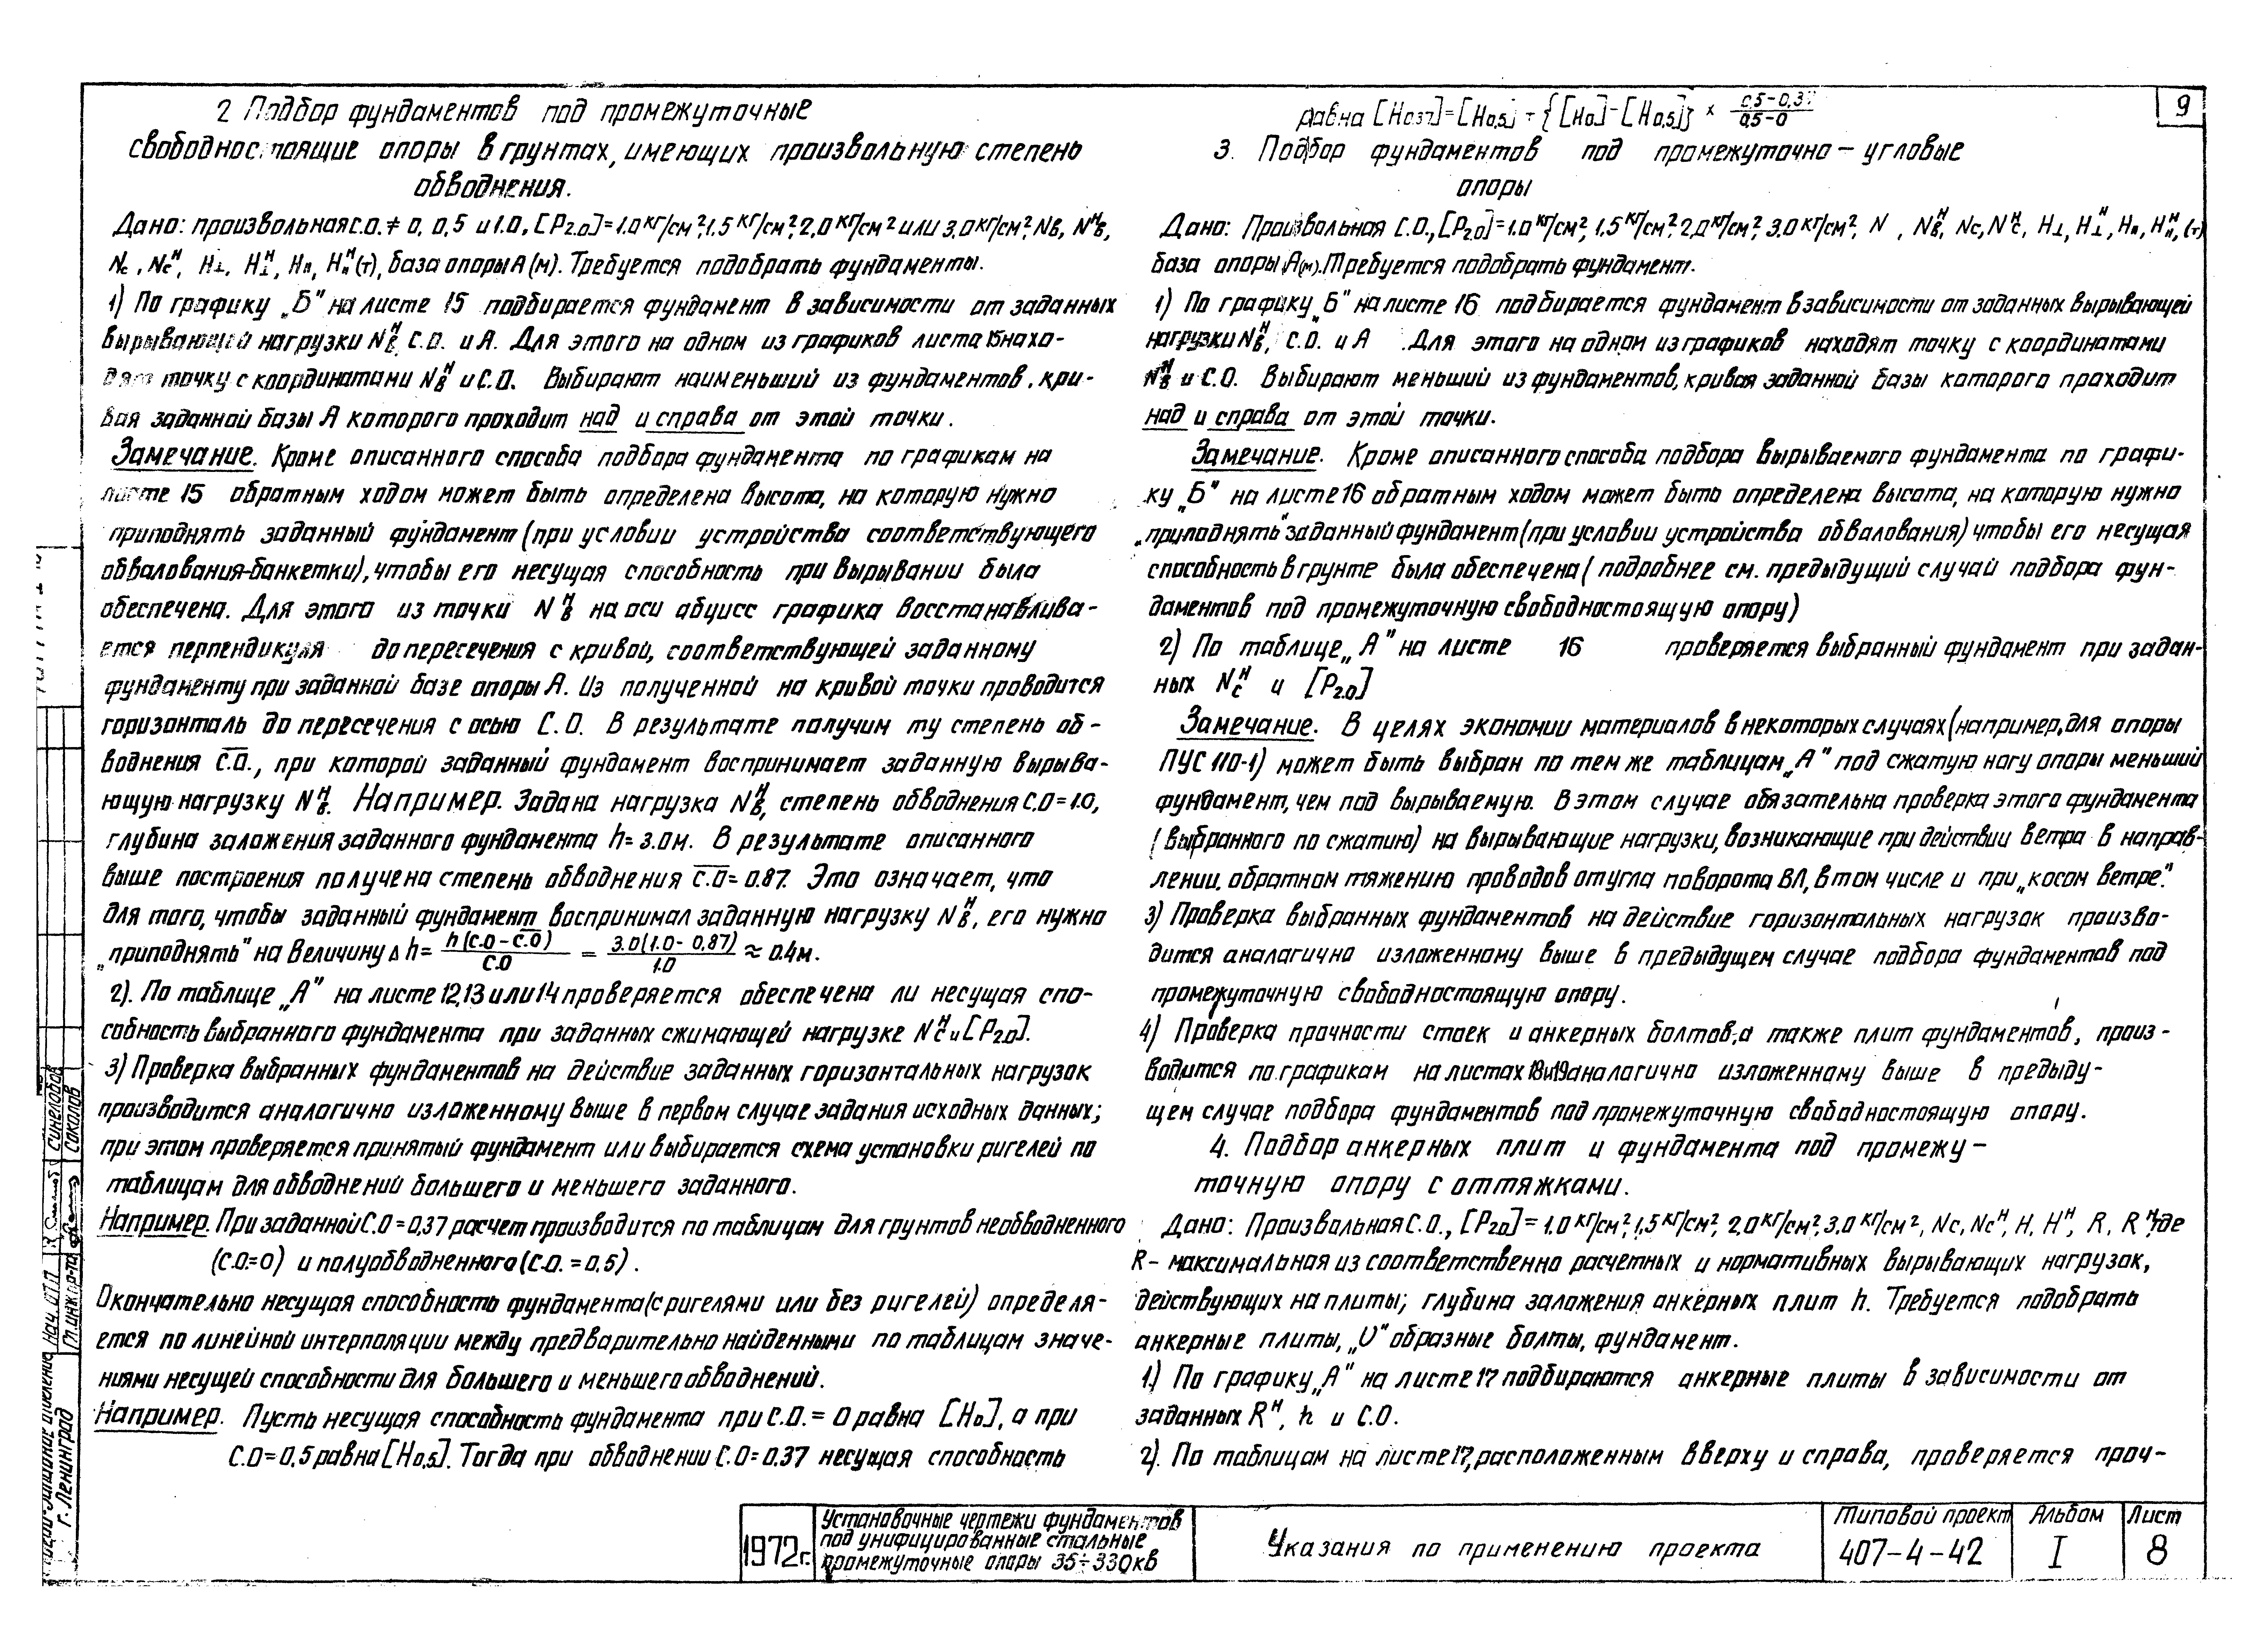 2 Подбор фундаментов под промежуточные
свободностоящие опоры в грунтах, имеющих произвольную степень
обводнения.
Дано: произвольная С.О. ≠ 0, 0,5 и 1.0, [Р2.0]=1.0 кг/см², 1.5 кг/см², 2,0 кг/см² или 3,0 кг/см², Nв, Nвᴴ,
Nс, Nсᴴ, Н⊥, Н⊥ᴴ, Нп, Нпᴴ(т), база опоры А(м). Требуется подобрать фундаменты.
1) По графику „Б" на листе 15 подбирается фундамент в зависимости от заданных
вырывающей нагрузки Nвᴴ, С.О. и А. Для этого на одном из графиков листа 15 нахо-
дят точку с координатами Nвᴴ и С.О. Выбирают наименьший из фундаментов, кри-
вая заданной базы А которого проходит над и справа от этой точки.
Замечание. Кроме описанного способа подбора фундамента по графикам на
листе 15 обратным ходом может быть определена высота, на которую нужно
приподнять заданный фундамент (при условии устройства соответствующего
обвалования-банкетки), чтобы его несущая способность при вырывании была
обеспечена. Для этого из точки Nвᴴ на оси абцисс графика восстанавлива-
ется перпендикуля до пересечения с кривой, соответствующей заданному
фундаменту при заданной базе опоры А. Из полученной на кривой точки проводится
горизонталь до пересечения с осью С.О. В результате получим ту степень об-
воднения С̅.О̅., при которой заданный фундамент воспринимает заданную вырыва-
ющую нагрузку Nвᴴ. Например. Задана нагрузка Nвᴴ, степень обводнения С.О=1.0,
глубина заложения заданного фундамента h=3.0м. В результате описанного
выше построения получена степень обводнения С̅.О̅=0.87. Это означает, что
для того, чтобы заданный фундамент воспринимал заданную нагрузку Nвᴴ, его нужно
„приподнять" на величину Δh= h(С.О-С̅.О̅)/С.О = 3.0(1.0-0,87)/1.0 ≈ 0.4м.
2). По таблице „А" на листе 12,13 или 14 проверяется обеспечена ли несущая спо-
собность выбранного фундамента при заданных сжимающей нагрузке Nсᴴ и [Р2.0].
3) Проверка выбранных фундаментов на действие заданных горизонтальных нагрузок
производится аналогично изложенному выше в первом случае задания исходных данных;
при этом проверяется принятый фундамент или выбирается схема установки ригелей по
таблицам для обводнений большего и меньшего заданного.
Например. При заданной С.О=0,37 расчет производится по таблицам для грунтов необводненного
(С.О.=0) и полуобводненного (С.О.=0,5).
Окончательно несущая способность фундамента (с ригелями или без ригелей) определя-
ется по линейной интерполяции между предварительно найденными по таблицам значе-
ниями несущей способности для большего и меньшего обводнений.
Например. Пусть несущая способность фундамента при С.О.=0 равна [Н₀], а при
С.О=0,5 равна [Н0,5]. Тогда при обводнении С.О=0.37 несущая способность
равна [Н0.37]=[Н0,5] + {[Н0]-[Н0,5]} × (0,5-0,37)/(0,5-0)
9
3. Подбор фундаментов под промежуточно-угловые
опоры
Дано: Произвольная С.О., [Р2.0]=1.0 кг/см², 1,5 кг/см², 2,0 кг/см², 3.0 кг/см², N , Nвᴴ, Nс, Nсᴴ, Н⊥, Н⊥ᴴ, Нп, Нпᴴ, (т)
база опоры А(м). Требуется подобрать фундамент.
1) По графику „Б" на листе 16 подбирается фундамент в зависимости от заданных вырывающей
нагрузки Nвᴴ, С.О. и А . Для этого на одном из графиков находят точку с координатами
Nвᴴ и С.О. Выбирают меньший из фундаментов, кривая заданной базы которого проходит
над и справа от этой точки.
Замечание. Кроме описанного способа подбора вырываемого фундамента по графи-
ку „Б" на листе 16 обратным ходом может быть определена высота, на которую нужно
„приподнять" заданный фундамент (при условии устройства обвалования) чтобы его несущая
способность в грунте была обеспечена (подробнее см. предыдущий случай подбора фун-
даментов под промежуточную свободностоящую опору)
2) По таблице „А" на листе 16 проверяется выбранный фундамент при задан-
ных Nсᴴ и [Р2.0]
Замечание. В целях экономии материалов в некоторых случаях (например, для опоры
ПУС 110-1) может быть выбран по тем же таблицам „А" под сжатую ногу опоры меньший
фундамент, чем под вырываемую. В этом случае обязательна проверка этого фундамента
(выбранного по сжатию) на вырывающие нагрузки, возникающие при действии ветра в направ-
лении, обратном тяжению проводов от угла поворота ВЛ, в том числе и при „косом ветре".
3) Проверка выбранных фундаментов на действие горизонтальных нагрузок произво-
дится аналогично изложенному выше в предыдущем случае подбора фундаментов под
промежуточную свободностоящую опору.
4) Проверка прочности стоек и анкерных болтов, а также плит фундаментов, произ-
водится по графикам на листах 18 и 19 аналогично изложенному выше в предыду-
щем случае подбора фундаментов под промежуточную свободностоящую опору.
4. Подбор анкерных плит и фундамента под промежу-
точную опору с оттяжками.
Дано: Произвольная С.О., [Р2.0]=1.0 кг/см², 1,5 кг/см², 2,0 кг/см², 3.0 кг/см², Nс, Nсᴴ, Н, Нᴴ, R, Rᴴ, где
R- максимальная из соответственно расчетных и нормативных вырывающих нагрузок,
действующих на плиты; глубина заложения анкерных плит h. Требуется подобрать
анкерные плиты, „U" образные болты, фундамент.
1.) По графику „А" на листе 17 подбираются анкерные плиты в зависимости от
заданных Rᴴ, h и С.О.
2). По таблицам на листе 17, расположенным вверху и справа, проверяется проч-
1972г.
Установочные чертежи фундаментов
под унифицированные стальные
промежуточные опоры 35÷330кв
Указания по применению проекта
Типовой проект
407-4-42
Альбом
I
Лист
8
Синелобов
Соколов
Нач. ОТП
Гл. инж. пр-та
г. Ленинград